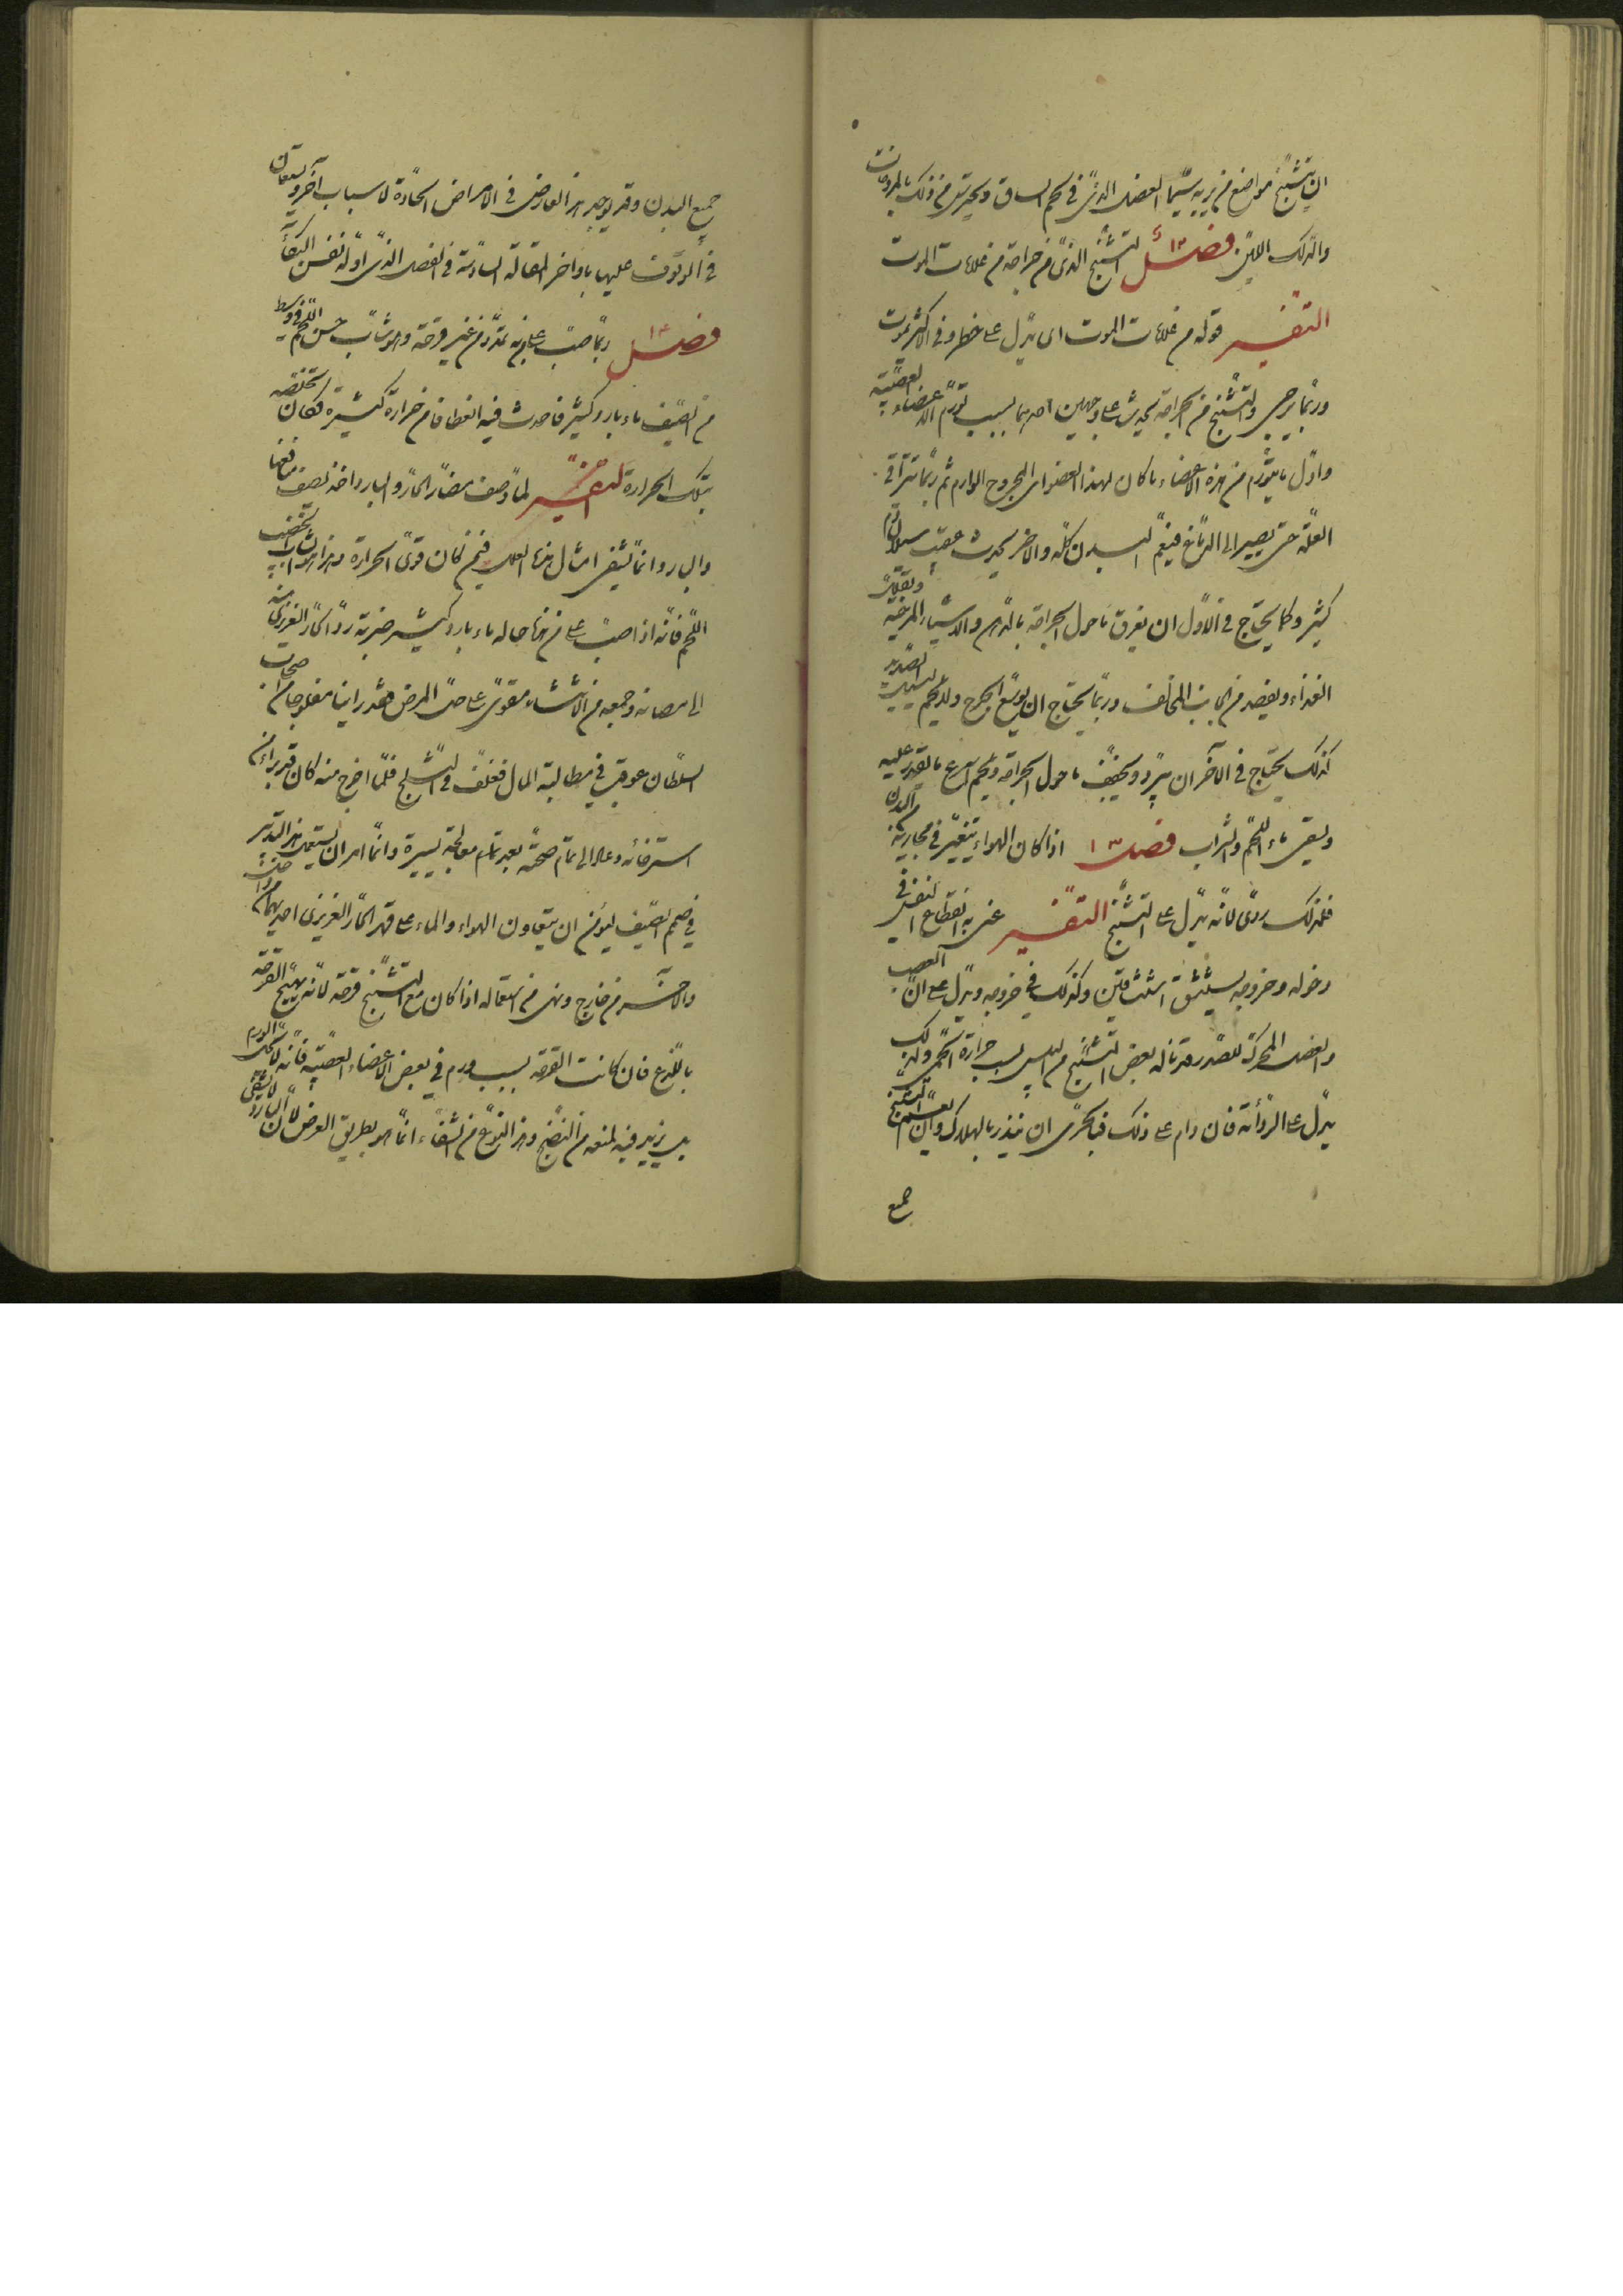 ان يتشنج مواضع من بدنه سيما العضل الذى فى لحم الساق ويحترس من ذلك بالمروخات
والدلك اللين فصل التشنج الذى من جراحة من علامات الموت
التفسير قوله من علامات الموت اى يدل على خطر وفى الاكثر يموت
وربما يرجى والتشنج من الجراحة يحدث على وجهين احدهما بسبب تورم الاعضاء العصبية
واول ما يتورم من هذه الاعضاء ما كان لهذا العضو اى المجروح الوارم ثم ربما تتراقى
العلة حتى تصير الى الدماغ فيعم البدن كله والاخر يحدث عقيب سيلان دم
كثير وكما يحتاج فى الاول ان يغرق ما حول الجراحة بالدهن والاشياء المرخية وتقليل
الغذاء ويفصد من الجانب المخالف وربما يحتاج ان يوسع الجرح ولا يلحم ليسيل الصديد
كذلك يحتاج فى الآخر ان يبرد ويجفف ما حول الجراحة ويلحم اسرع ما يقدر عليه
ويسقى ماء اللحم والشراب فصل ١٣ اذا كان الهواء يتغير فى مجاريه من البدن
فلذلك ردى لانه يدل على التشنج التفسير عنى به انقطاع النفس فى
دخوله وخروجه يستنشق وكذلك فى خروجه ويدل على ان العصب
والعضل المحركة للصدر قد ناله بعض التشنج من اليبس بسبب حرارة الحمى ولذلك
يدل على الردائة فان دام على ذلك فبالحرى ان ينذر بالهلاك وان التشنج يعم
جميع
جميع البدن وقد يوجد هذا العارض فى الامراض الحادة لاسباب آخر ويستعان
فى الوقوف عليها باواخر المقالة السادسة فى الفصل الذى اوله نفس البكاء
فصل ١٤ ربما صب على من به تمدد من غير قرحة وهو شاب حسن اللحم فى وسط
من الصيف ماء بارد كثير فاحدث فيه انعطافا من حرارة كثيرة فكان تخلصه
بتلك الحرارة التفسير لما وصف مضار الحار والبارد اخذ يصف منافعها
والبارد انما يشفى امثال هذه العلل فيمن كان قوى الحرارة وهذا هو الشاب الخصب
اللحم فانه اذا صب على من هذه حاله ماء بارد كثير ضربة رد الحار الغريزى
الى وجمعه من الانتشاء مقوى على حل المرض وقد راينا مفلوجا من اصحاب
السلطان عوقب فى مطالبة المال فغلف فى الثلج فلما اخرج منه كان قد برا من
استرخائه وعاد الى تمام صحته بعد تمام معالجة يسيرة وانما امر ان يستعمل هذا التدبير
فى صميم الصيف ليؤمن ان يتعاون الهواء والماء على قهر الحار الغريزى احدهما من داخل
والآخر من خارج ونهى من استعماله اذا كان مع التشنج قرحة لانه يهيج القرحة
باللذع فان كانت القرحة بسبب ورم فى بعض الاعضاء العصبية فانه لا يحلل الورم
بل يزيد فيه لمنعه من النضج وهذا النوع من الشفاء انما هو بطريق العرض لان البارد لا يشفى